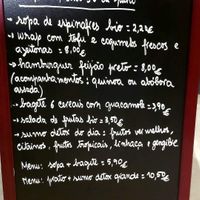 → sopa de espinafres bio = 2,20€
→ wrap com tofu e cogumelos frescos e
azeitonas = 8,00€
→ hambúrguer feijão preto = 8,00€
(acompanhamentos: quinoa ou abóbora
assada)
→ bagete 6 cereais com guacamole = 3,90
→ salada de frutas bio = 3,50€
→ sumo detox do dia: frutos vermelhos,
citrinos, frutos tropicais, linhaça e gengibre
Menu: sopa + bagete = 5,90€
Menu: prato + sumo detox grande = 10,50€